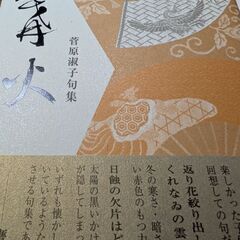 火
菅原淑子句集
楽しかった
回想しての句
返り花絞り出
くれなゐの雲
冬の寒さ・暗さ
い赤色のもつ力
日蝕の欠片はど
太陽の黒いかけ
が隠してしまっ
いずれも懐かし
いているような
せる句集であ